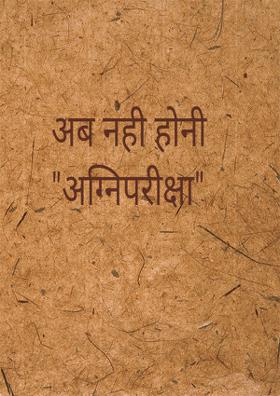 अब नही होनी
"अग्निपरीक्षा"